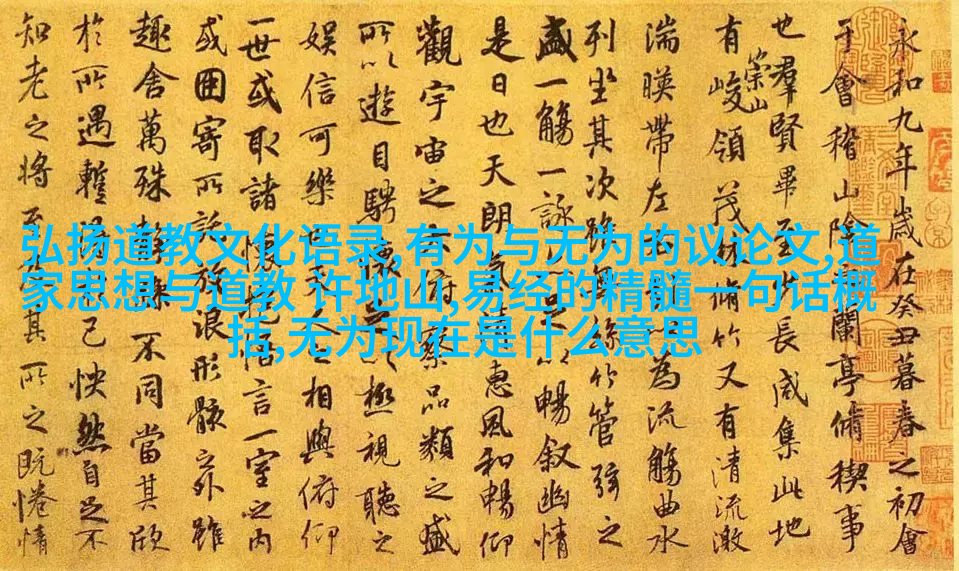 弘扬道教文化语录,有为与无为的议论文,道
家思想与道教 许地山,易经的精髓一句话概
括,无为现在是什么意思
永和九年歲在癸丑暮春之初會
于會稽山陰之蘭亭脩稧事
也羣賢畢至少長咸集此地
有崇山峻領茂林脩竹又有清流激
湍暎帶左右引以為流觴曲水
列坐其次雖無絲竹管弦之
盛一觴一詠亦足以暢叙幽情
是日也天朗氣清惠風和暢仰
觀宇宙之大俯察品類之盛
所以遊目騁懷足以極視聽之
娛信可樂也夫人之相與俯仰
一世或取諸懷抱悟言一室之內
或因寄所託放浪形骸之外雖
趣舍萬殊靜躁不同當其欣
於所遇暫得於己怏然自足不
知老之將至及其所之既惓情